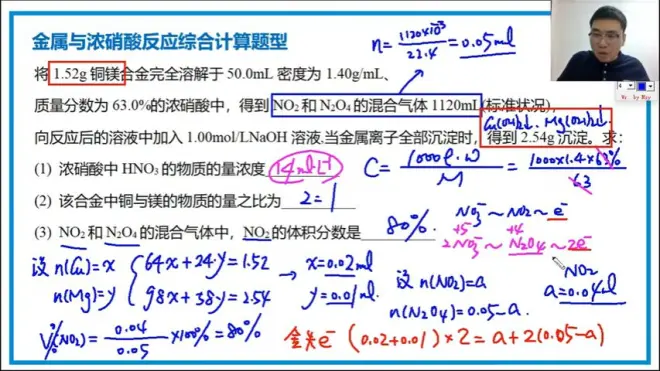 金属与浓硝酸反应综合计算题型
n=1120×10⁻³/22.4=0.05mol
将 1.52g 铜镁合金完全溶解于 50.0mL 密度为 1.40g/mL、
质量分数为 63.0%的浓硝酸中，得到 NO₂ 和 N₂O₄ 的混合气体 1120mL(标准状况)，
Cu(OH)₂↓ Mg(OH)₂↓
向反应后的溶液中加入 1.00mol/LNaOH 溶液.当金属离子全部沉淀时，得到 2.54g 沉淀。求：
(1) 浓硝酸中 HNO₃ 的物质的量浓度 14mol·L⁻¹ C=1000ρ.w/M=1000×1.4×63%/63
(2) 该合金中铜与镁的物质的量之比为 2=1
(3) NO₂ 和 N₂O₄ 的混合气体中，NO₂ 的体积分数是 80%
NO₃⁻~NO₂~e⁻
+5 +4
2NO₃⁻~N₂O₄~2e⁻
设 n(Cu)=x 64x+24y=1.52 → x=0.02mol
n(Mg)=y 98x+38y=2.54 y=0.01mol
设 n(NO₂)=a
n(N₂O₄)=0.05-a
NO₂
a=0.04mol
V%(NO₂)=0.04/0.05×100%=80%
金失e⁻ (0.02+0.01)×2=a+2(0.05-a)